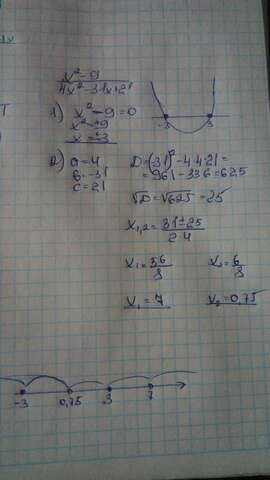 x² - 9
4x² - 31x + 21
1) x² - 9 = 0
x² = 9
x = ±3
-3 3
2) a = 4
b = -31
c = 21
D = (31)² - 4·4·21 =
= 961 - 336 = 625
√D = √625 = 25
x₁,₂ = 31 ± 25
2·4
x₁ = 56
8
x₂ = 6
8
x₁ = 7
x₂ = 0,75
-3 0,75 3 7